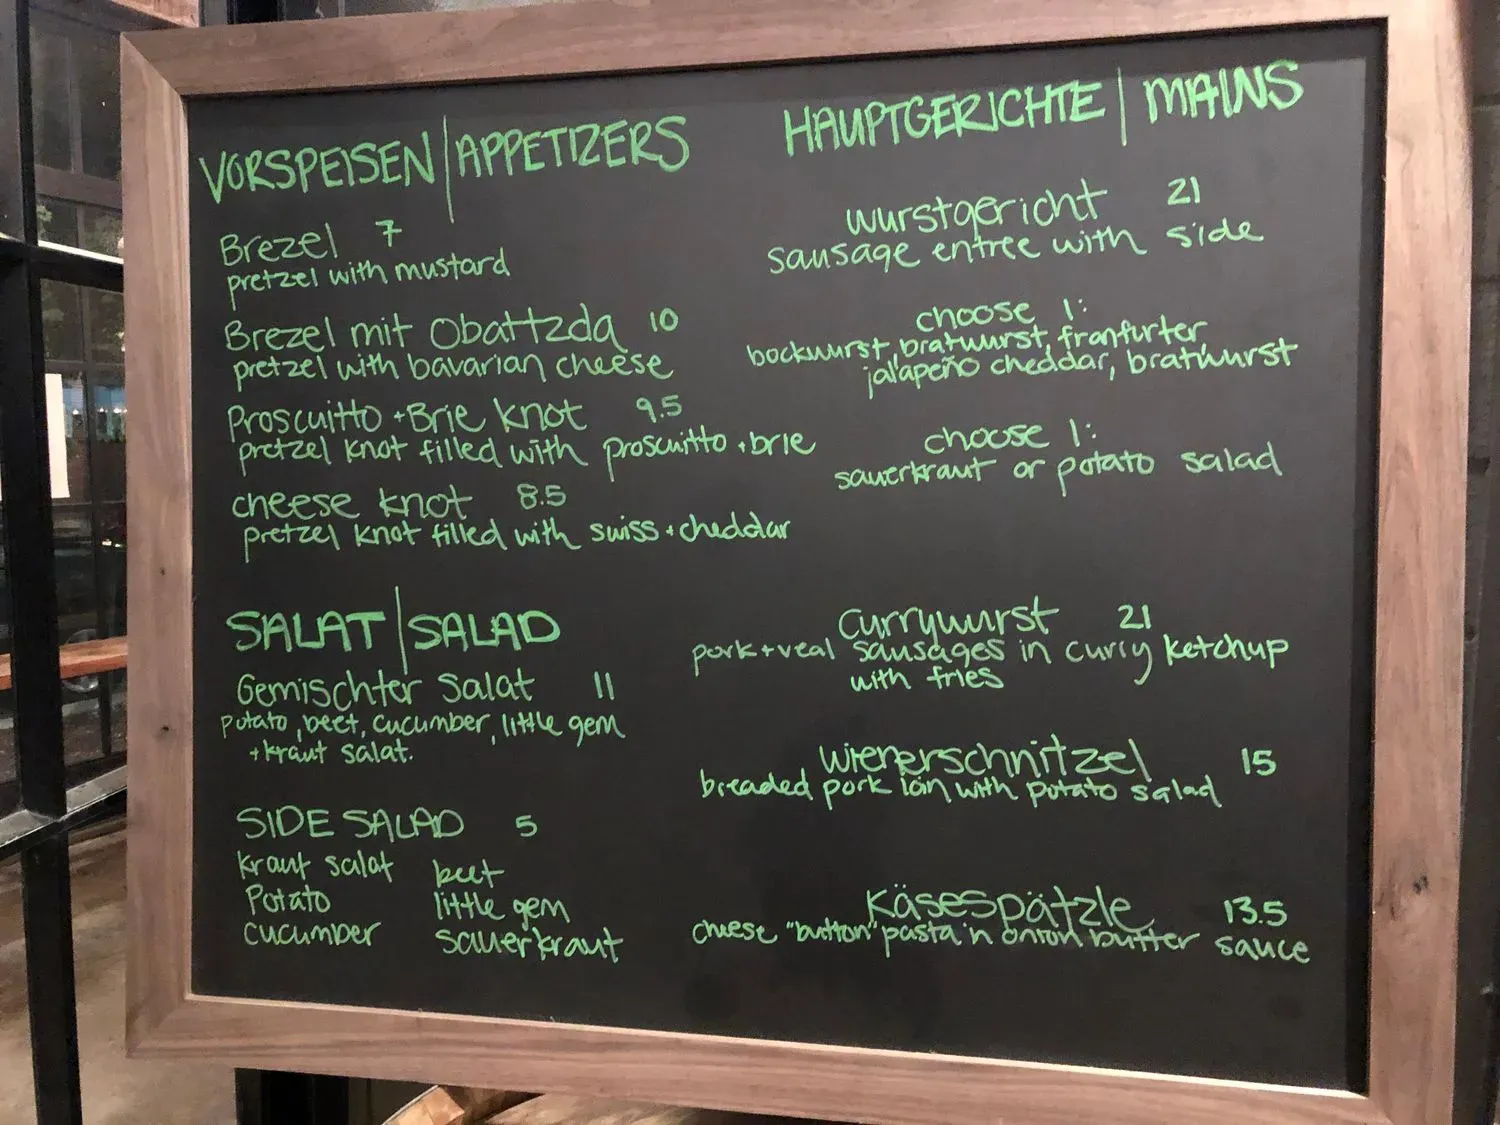 VORSPEISEN | APPETIZERS
Brezel 7
pretzel with mustard
Brezel mit Obattzda 10
pretzel with bavarian cheese
Proscuitto + Brie knot 9.5
pretzel knot filled with proscuitto + brie
cheese knot 8.5
pretzel knot filled with swiss + cheddar
SALAT | SALAD
Gemischter Salat 11
potato, beet, cucumber, little gem
+ kraut salat.
SIDE SALAD 5
kraut salat beet
Potato little gem
cucumber sauerkraut
HAUPTGERICHTE | MAINS
wurstgericht 21
sausage entree with side
choose 1:
bockwurst, bratwurst, franfurter,
jalapeño cheddar, brathurst
choose 1:
sauerkraut or potato salad
Currywurst 21
pork + veal sausages in curry ketchup
with fries
Wienerschnitzel 15
breaded pork loin with potato salad
Käsespätzle 13.5
cheese "button" pasta in onion butter sauce